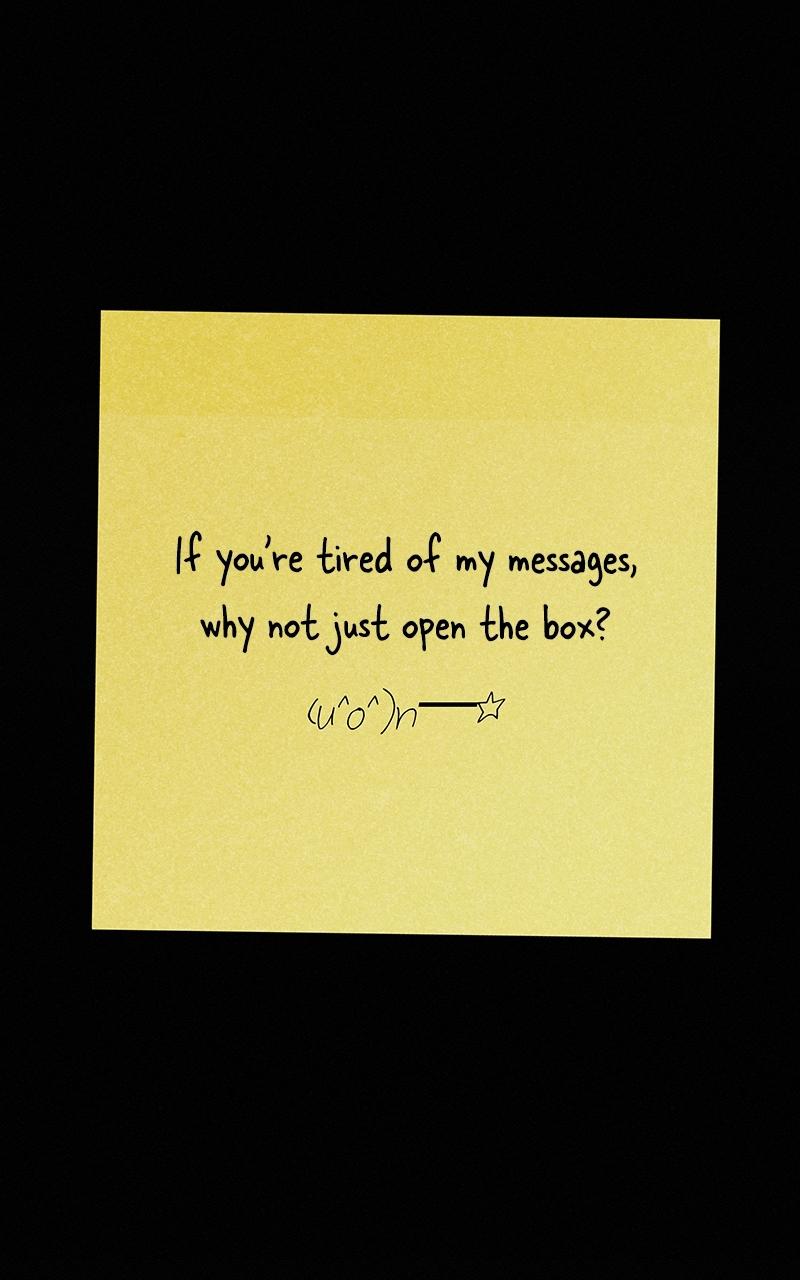 If you're tired of my messages,
why not just open the box?
(u^o^)n━━☆